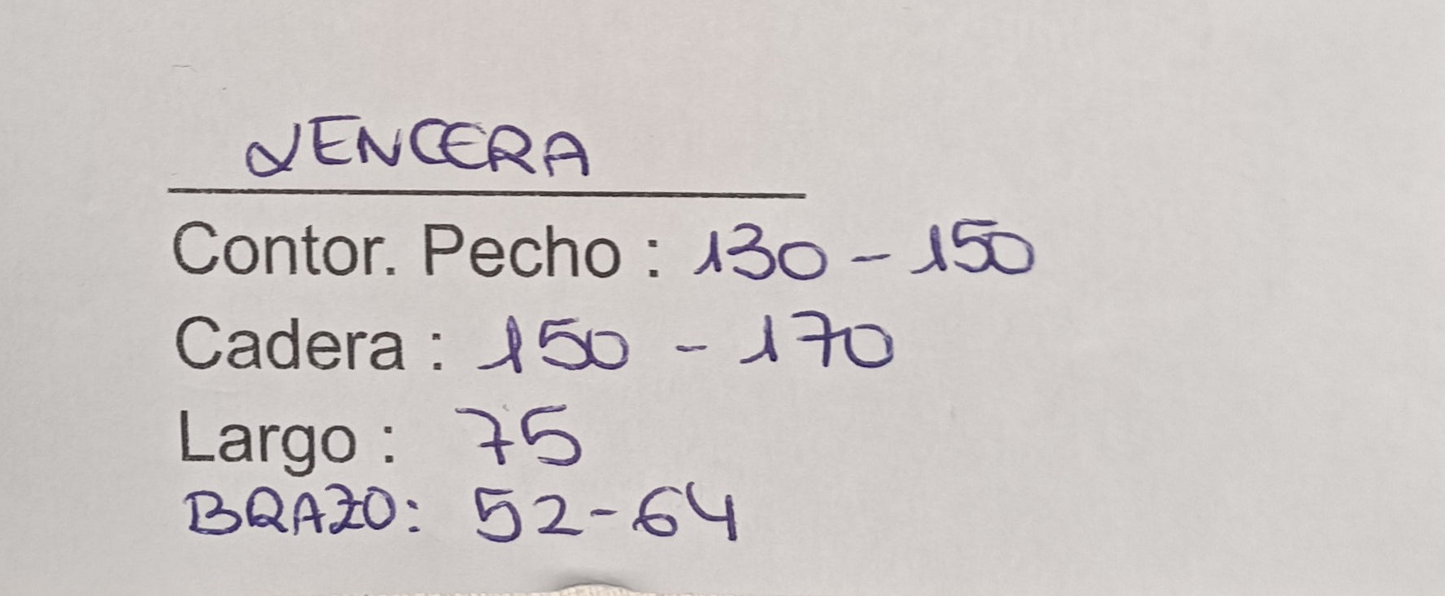 LENCERA
Contor. Pecho : 130 - 150
Cadera : 150 - 170
Largo : 75
BRAZO: 52-64